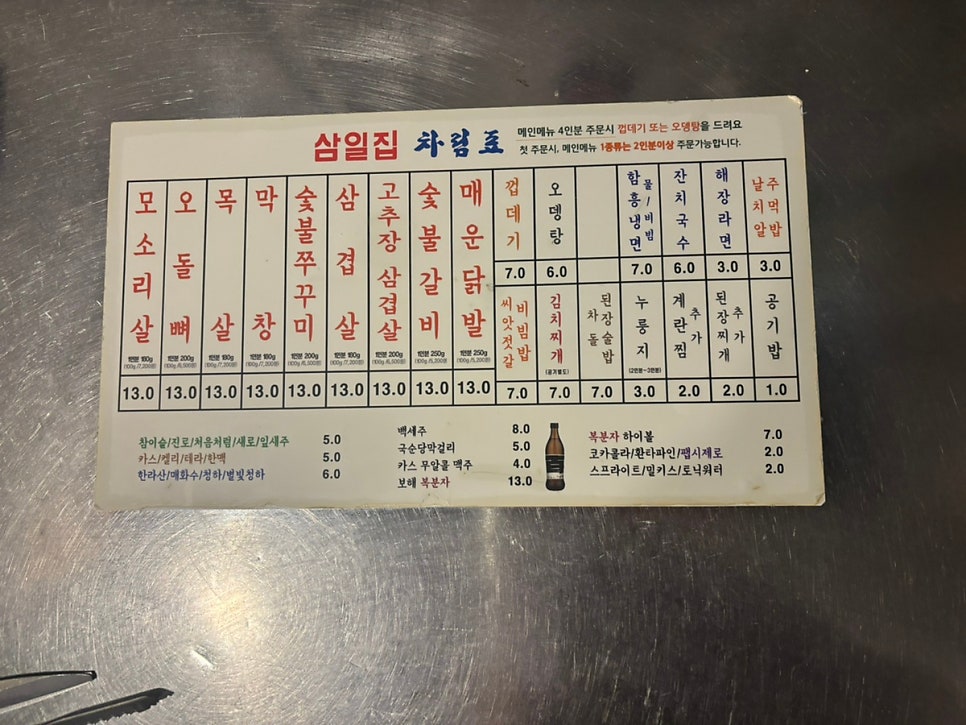 삼일집 차림표
메인메뉴 4인분 주문시 껍데기 또는 오뎅탕을 드려요
첫 주문시, 메인메뉴 1종류는 2인분이상 주문가능합니다.
모소리살
1인분 180g
(100g /7,200원)
13.0
오돌뼈
1인분 200g
(100g /6,500원)
13.0
목살
1인분 180g
(100g /7,200원)
13.0
막창
1인분 180g
(100g /7,200원)
13.0
숯불쭈꾸미
1인분 200g
(100g /6,500원)
13.0
삼겹살
1인분 180g
(100g /7,200원)
13.0
고추장삼겹살
1인분 200g
(100g /6,500원)
13.0
숯불갈비
1인분 250g
(100g /5,200원)
13.0
매운닭발
1인분 250g
(100g /5,200원)
13.0
껍데기
7.0
오뎅탕
6.0
함흥냉면
물/비빔
7.0
잔치국수
6.0
해장라면
3.0
날치알
주먹밥
3.0
씨앗젓갈
비빔밥
7.0
김치찌개
(공기별도)
7.0
차돌
된장술밥
7.0
누룽지
(2인분~3인분)
3.0
계란찜
추가
2.0
된장찌개
추가
2.0
공기밥
1.0
참이슬/진로/처음처럼/새로/잎새주 5.0
카스/켈리/테라/한맥 5.0
한라산/매화수/청하/별빛청하 6.0
백세주 8.0
국순당막걸리 5.0
카스 무알콜 맥주 4.0
보해 복분자 13.0
복분자 하이볼 7.0
코카콜라/환타파인/펩시제로 2.0
스프라이트/밀키스/토닉워터 2.0